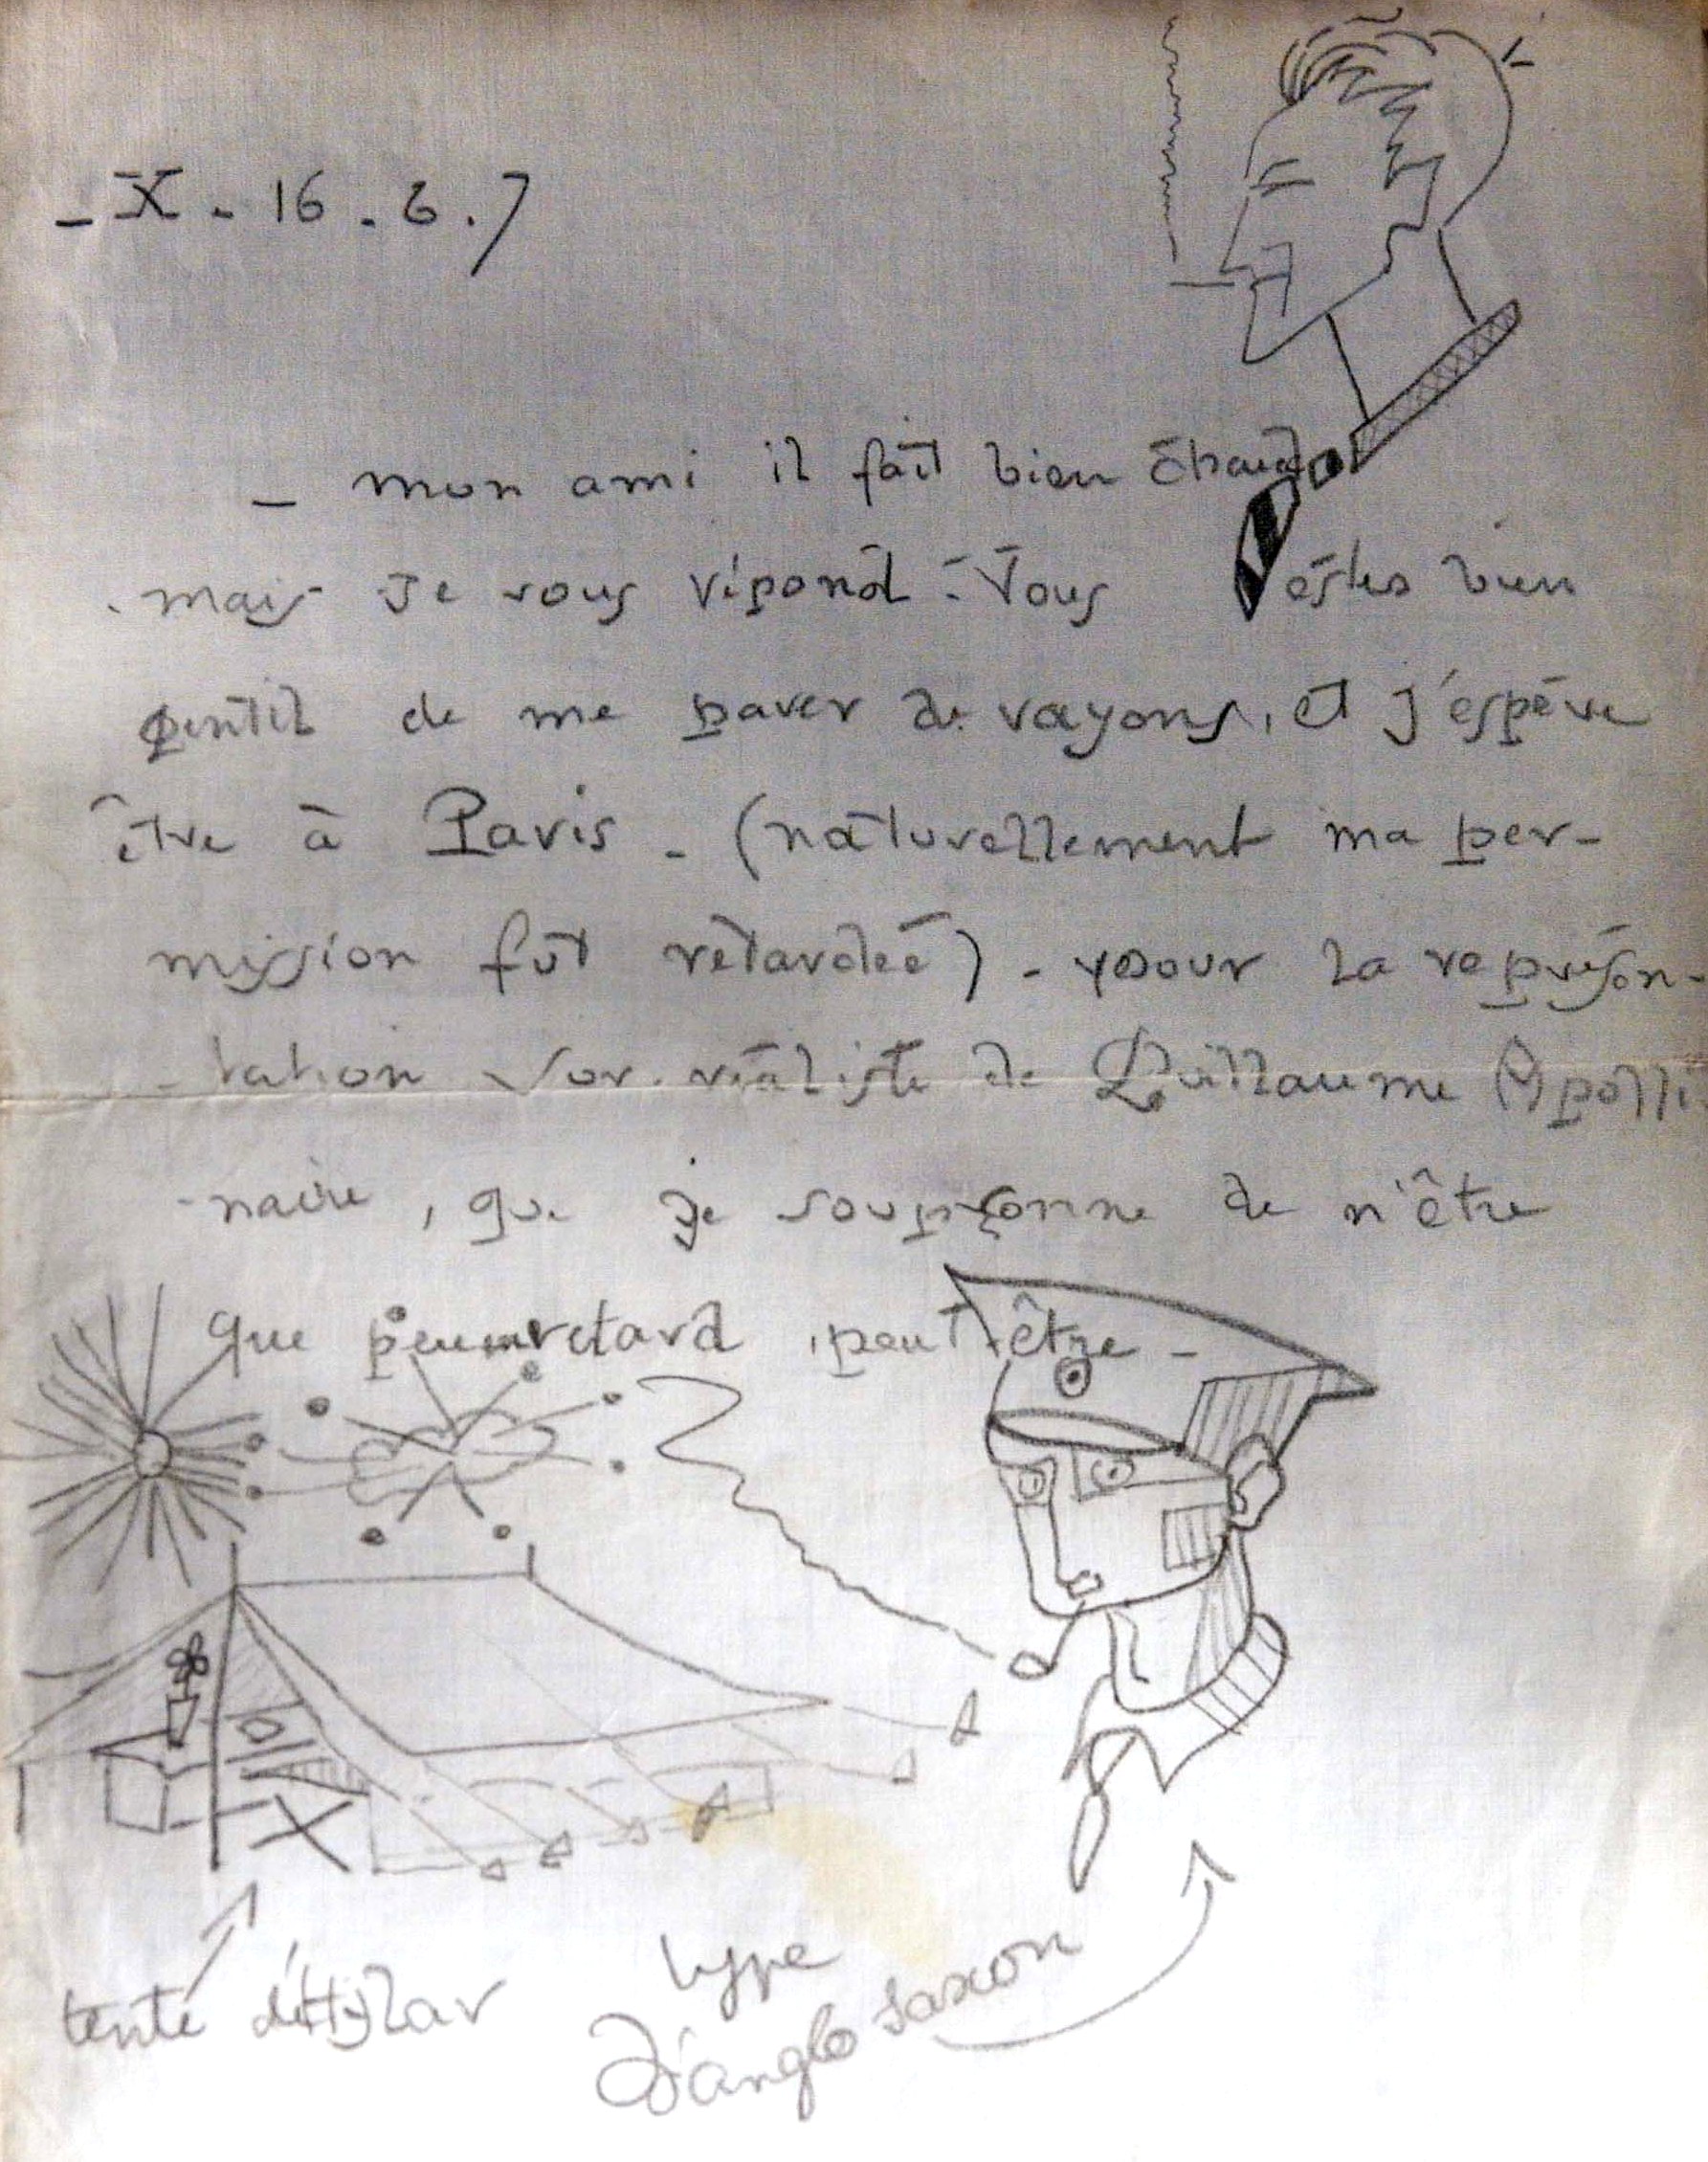 - X - 16 . 6 . 7
- mon ami il fait bien chaud
mais je vous répond - Vous êstes bien
gentil de me parer de rayons, et j'espère
être à Paris - (naturellement ma per-
mission fut retardée) - pour la représen-
- tation sur-réaliste de Guillaume Apolli-
naire, que je soupçonne de n'être
que retard, peut-être -
tente d'ettglar
type
d'anglo saxon